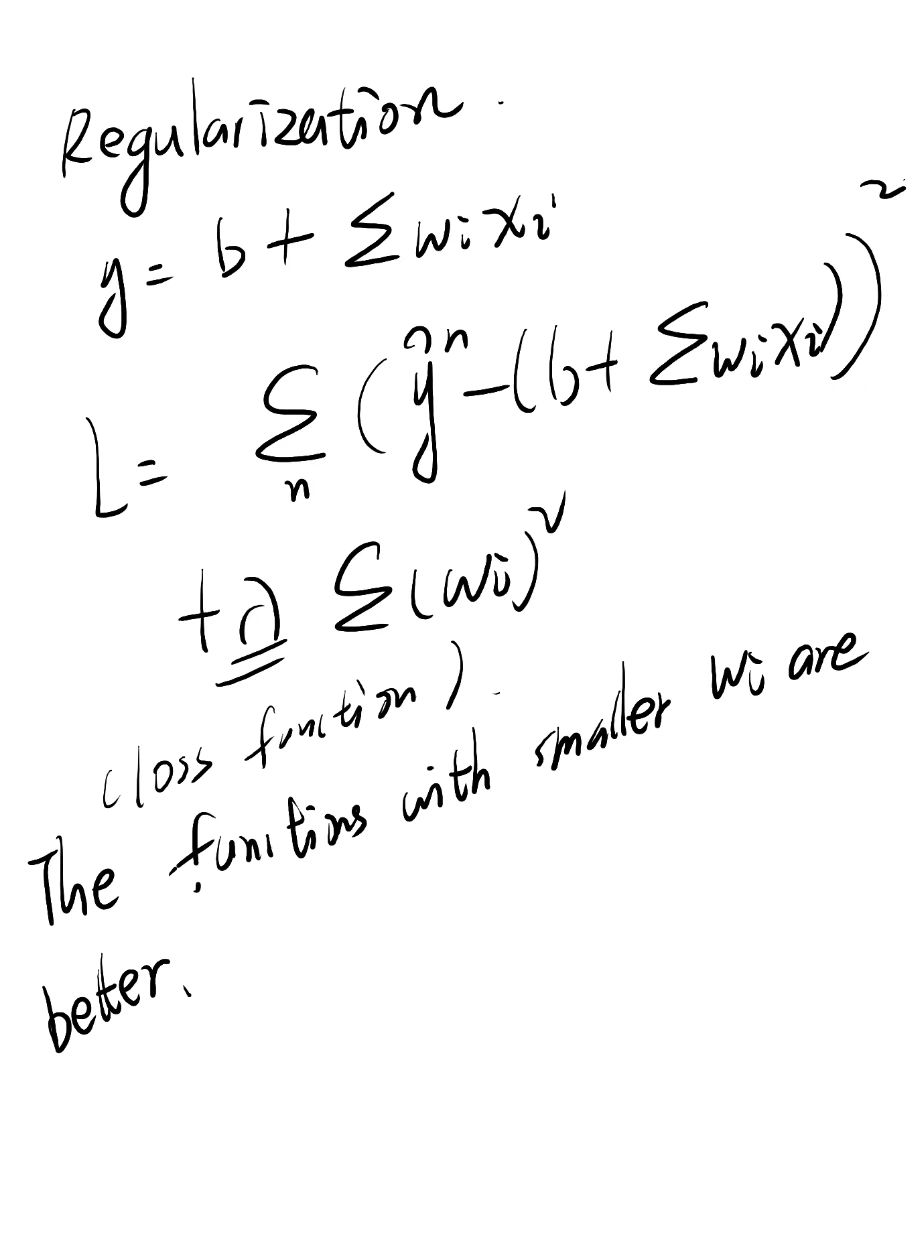 Regularization.
y = b + Σ wi xi
L = Σ n (ŷⁿ - (b + Σ wi xi))²
+ λ Σ (wi)²
(loss function).
The functions with smaller wi are
better.